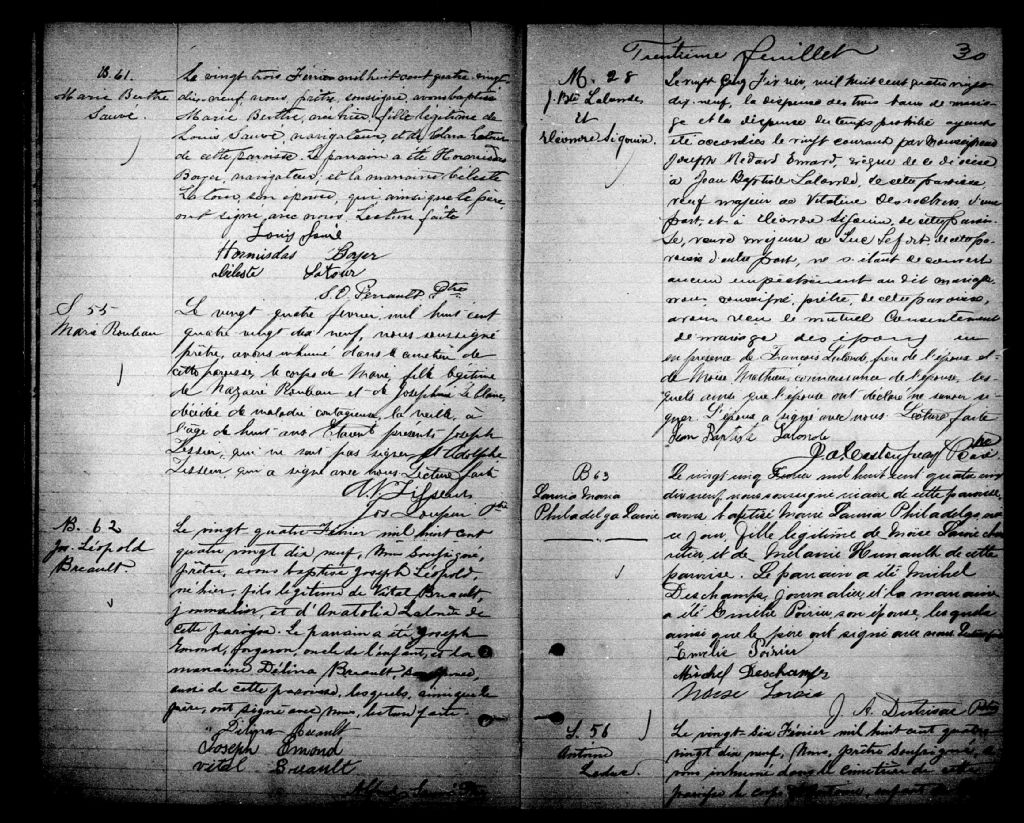 B. 61.
Marie Berthe
Sauvé.
Le vingt trois Février mil huit cent quatre vingt
dix-neuf, nous, prêtre, soussigné, avons baptisé
Marie Berthe, née hier, fille légitime de
Louis Sauvé, navigateur, et de Clara
de cette paroisse. Le parrain a été Hormisdas
Boyer, navigateur, et la marraine Céleste
Latour, son épouse, qui ainsi que le père
ont signé avec nous. Lecture faite
Louis Sauvé
Hormisdas Boyer
Céleste Latour
S. O. Perrault Ptre
S 55
Marie Rouleau
Le vingt quatre février mil huit cent
quatre vingt dix neuf, nous soussigné
prêtre, avons inhumé dans le cimetière de
cette paroisse, le corps de Marie, fille légitime
de Nazaire Rouleau et de Josephine Leblanc,
décédée de maladie contagieuse la veille, à
l'âge de huit ans. Etaient présents Joseph
Tessier, qui ne sait pas signer et Adolphe
qui a signé avec nous. Lecture faite
Ptre
B. 62
Jos. Léopold
Breault.
Le vingt quatre Février mil huit cent
quatre vingt dix neuf, Nous soussigné,
prêtre, avons baptisé Joseph Léopold,
né hier, fils légitime de Vital Breault,
journalier, et d'Anatolie Lalonde de
cette paroisse. Le parrain a été Joseph
Emond, forgeron, oncle de l'enfant, et la
marraine Délina Breault, son épouse,
aussi de cette paroisse, lesquels, ainsi que le
père, ont signé avec Nous, lecture faite.
Délina Breault
Joseph Emond
Vital Breault
Trentième feuillet 30
M. 28
J. Bte Lalonde
et
Eléonore Séguin.
Le vingt cinq Février, mil huit cent quatre vingt
dix-neuf, la dispense des trois bans de mariage
et la dispense du temps prohibé ayant
été accordées le vingt courant par Monseigneur
Joseph Médard Emard, évêque de ce diocèse
à Jean Baptiste Lalonde, de cette paroisse,
veuf majeur de Vitaline Desrochers, d'une
part, et à Eléonore Séguin, de cette paroisse,
veuve majeure de Luc Lefort de cette paroisse
d'autre part, ne s'étant découvert
aucun empêchement au dit mariage,
nous, soussigné, prêtre, de cette paroisse,
avons reçu le mutuel consentement
de mariage des époux en
la présence de François Lalonde, père de l'époux et
de Moïse Mathieu, connaissance de l'épouse, lesquels
ainsi que l'épouse ont déclaré ne savoir signer
L'époux a signé avec nous. Lecture faite
Jean Baptiste Lalonde
Ptre
B 63
Maria
Philadelga
Le vingt cinq Février mil huit cent quatre vingt
dix neuf, nous soussigné vicaire de cette paroisse,
avons baptisé Marie Philadelga, née
ce jour, fille légitime de Moïse charretier,
et de Mélanie Hunault de cette
paroisse. Le parrain a été Michel
Deschamps, journalier, et la marraine
a été Emélie Poirier, son épouse, lesquels
ainsi que le père ont signé avec nous. Lecture faite
Emélie Poirier
Michel Deschamps
J. A. Dutrisac Ptre
S. 56
Antoine
Leduc.
Le vingt six Février mil huit cent quatre
vingt dix neuf, Nous, prêtre soussigné, avons
inhumé dans le cimetière de cette
paroisse le corps d'Antoine, enfant de